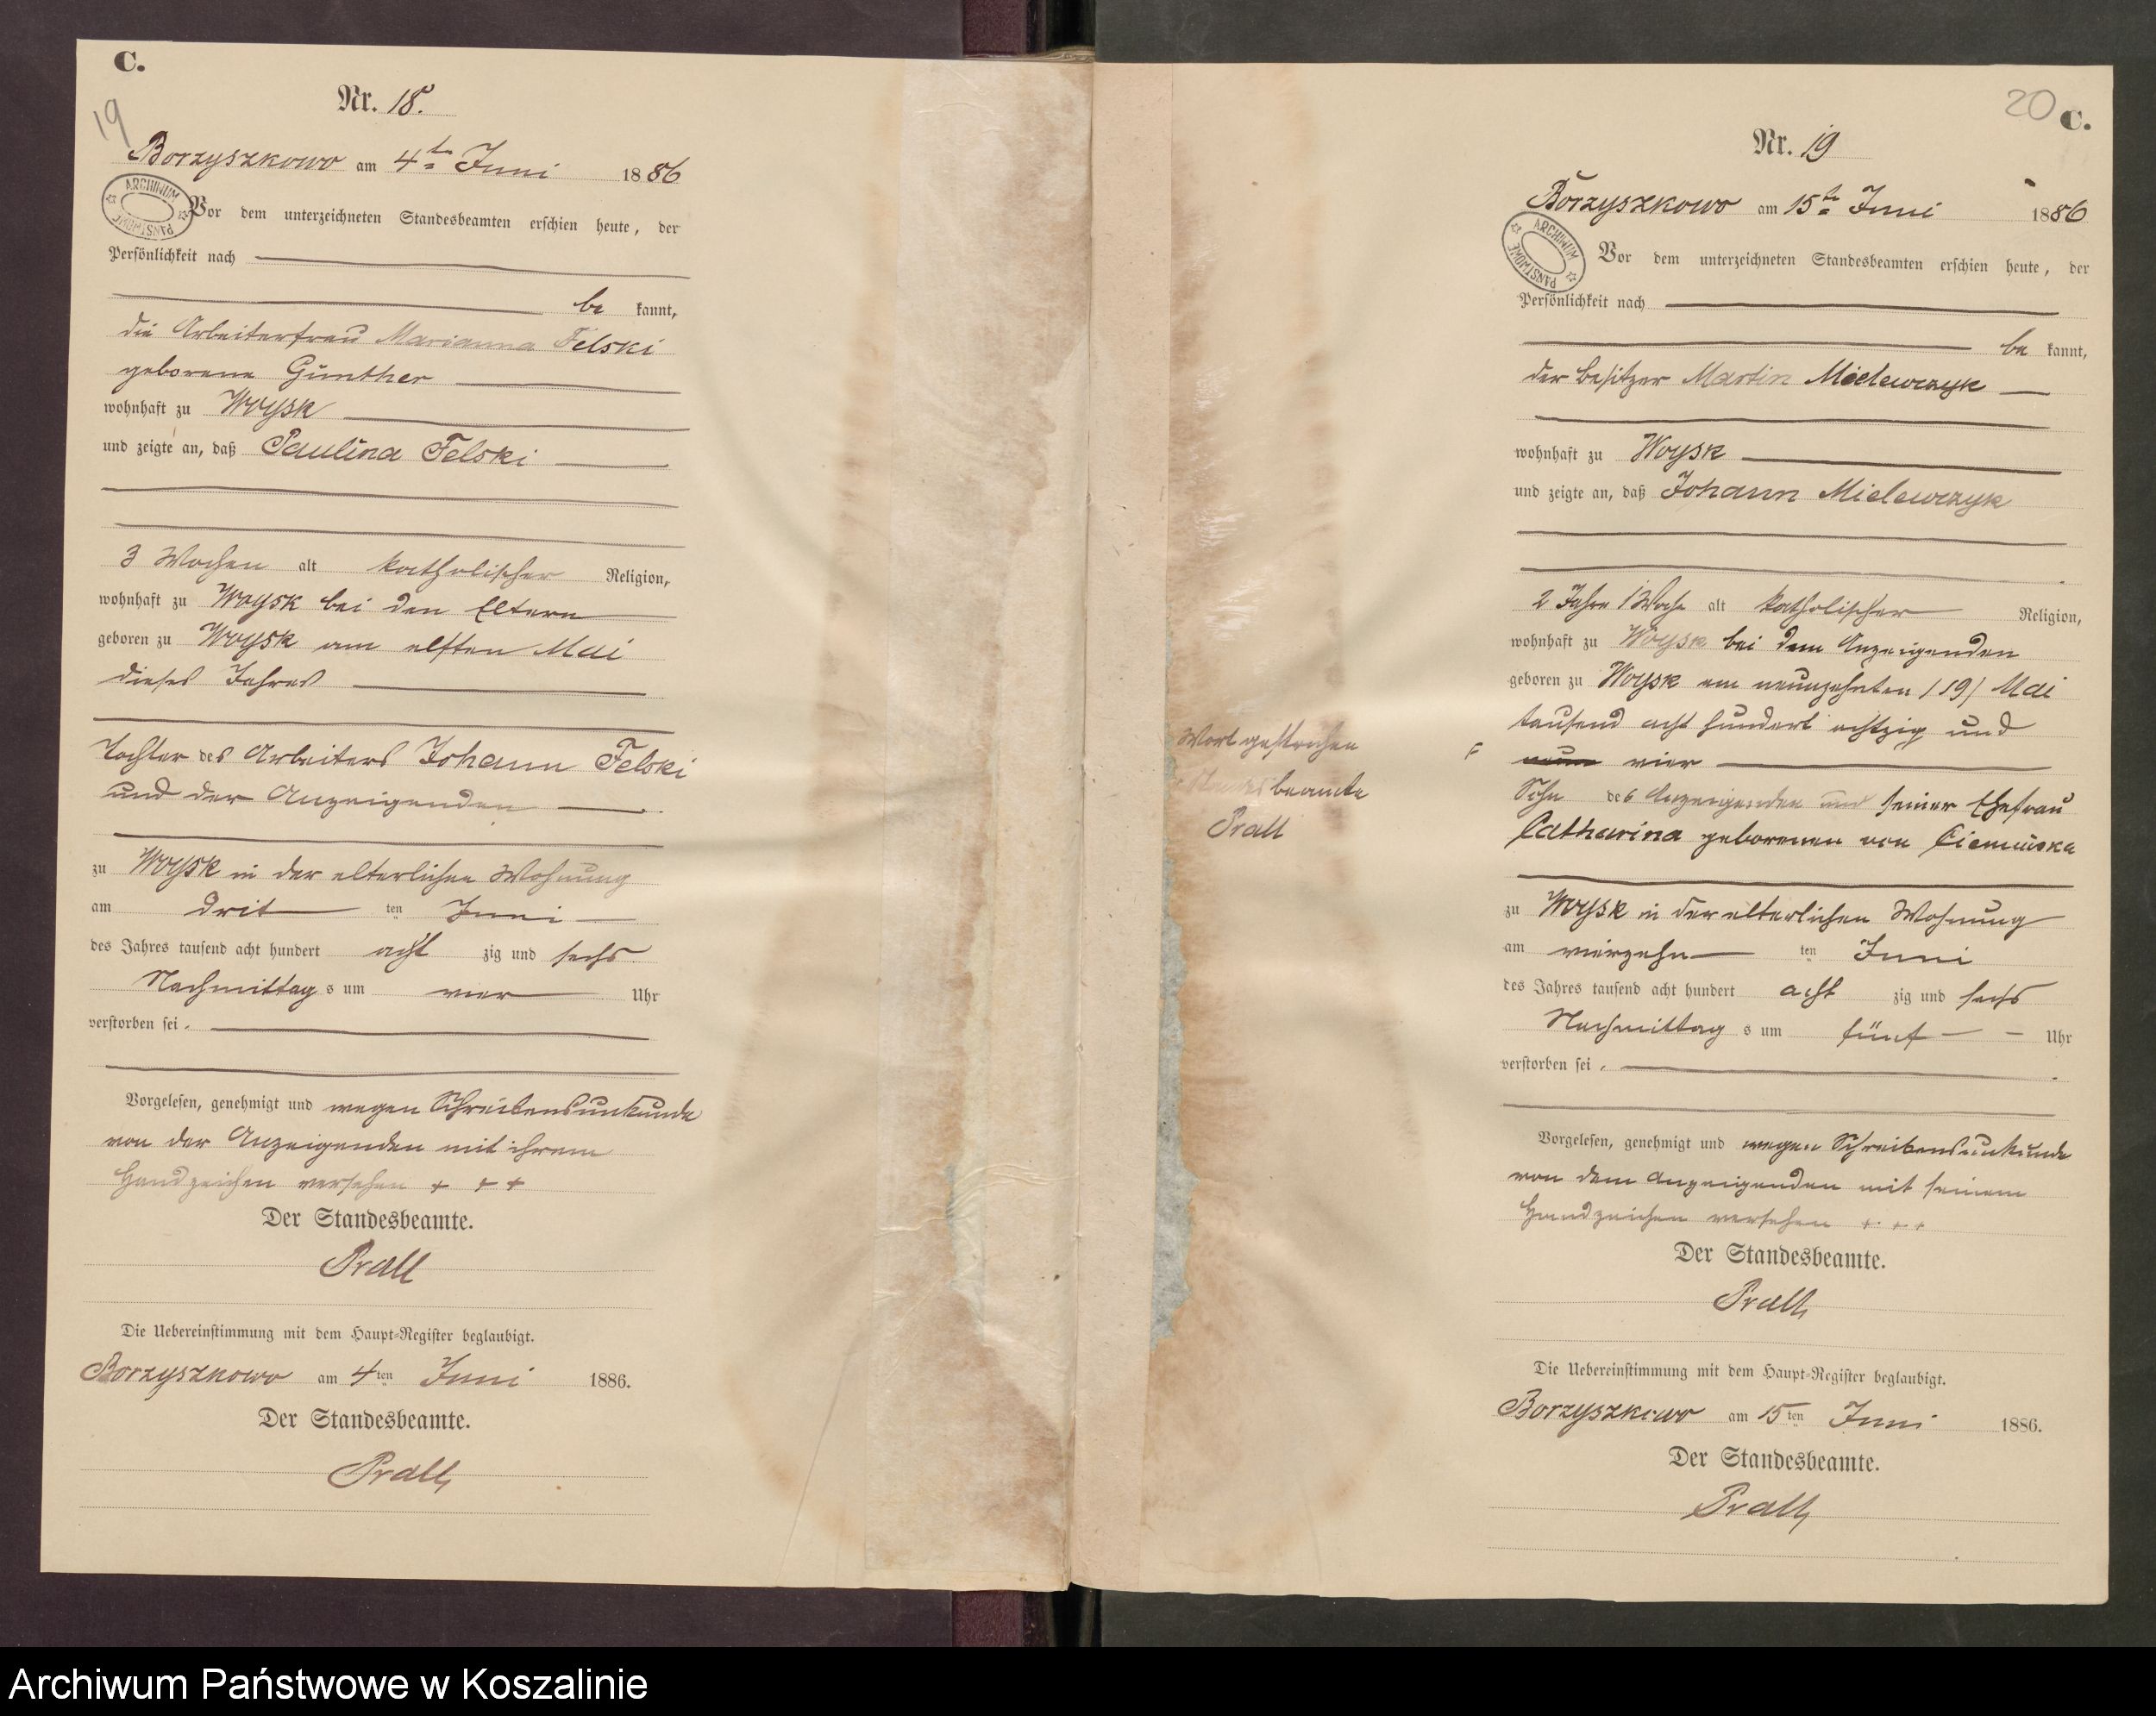 C.
19
Nr. 18.
Borzyszkowo am 4ten Juni 1886
ARCHIWUM PAŃSTWOWE
Vor dem unterzeichneten Standesbeamten erschien heute, der
Persönlichkeit nach
be kannt,
die Arbeiterfrau Marianna Felski
geborene Günther
wohnhaft zu Woysk
und zeigte an, daß Paulina Felski
3 Wochen alt katholischer Religion,
wohnhaft zu Woysk bei den Eltern
geboren zu Woysk am elften Mai
dieses Jahres
Tochter des Arbeiters Johann Felski
und der Anzeigenden
zu Woysk in der elterlichen Wohnung
am drit ten Juni
des Jahres tausend acht hundert acht zig und sechs
Nachmittag s um vier Uhr
verstorben sei.
Vorgelesen, genehmigt und wegen Schreibensunkunde
von der Anzeigenden mit ihrem
Handzeichen versehen + + +
Der Standesbeamte.
Prall
Die Uebereinstimmung mit dem Haupt-Register beglaubigt.
Borzyszkowo am 4ten Juni 1886.
Der Standesbeamte.
Prall
20
C.
Nr. 19
Borzyszkowo am 15ten Juni 1886
ARCHIWUM PAŃSTWOWE
Vor dem unterzeichneten Standesbeamten erschien heute, der
Persönlichkeit nach
be kannt,
der Besitzer Martin Mielewczyk
wohnhaft zu Woysk
und zeigte an, daß Johann Mielewczyk
2 Jahre 1 Woche alt katholischer Religion,
wohnhaft zu Woysk bei dem Anzeigenden
geboren zu Woysk am neunzehnten /19/ Mai
tausend acht hundert achtzig und
vier
Wort gestrichen
Standesbeamte
Prall
Sohn des Anzeigenden und seiner Ehefrau
Catharina geborenen von
zu Woysk in der elterlichen Wohnung
am vierzehn ten Juni
des Jahres tausend acht hundert acht zig und sechs
Nachmittag s um fünf Uhr
verstorben sei.
Vorgelesen, genehmigt und wegen Schreibensunkunde
von dem Anzeigenden mit seinem
Handzeichen versehen + + +
Der Standesbeamte.
Prall
Die Uebereinstimmung mit dem Haupt-Register beglaubigt.
Borzyszkowo am 15ten Juni 1886.
Der Standesbeamte.
Prall
Archiwum Państwowe w Koszalinie